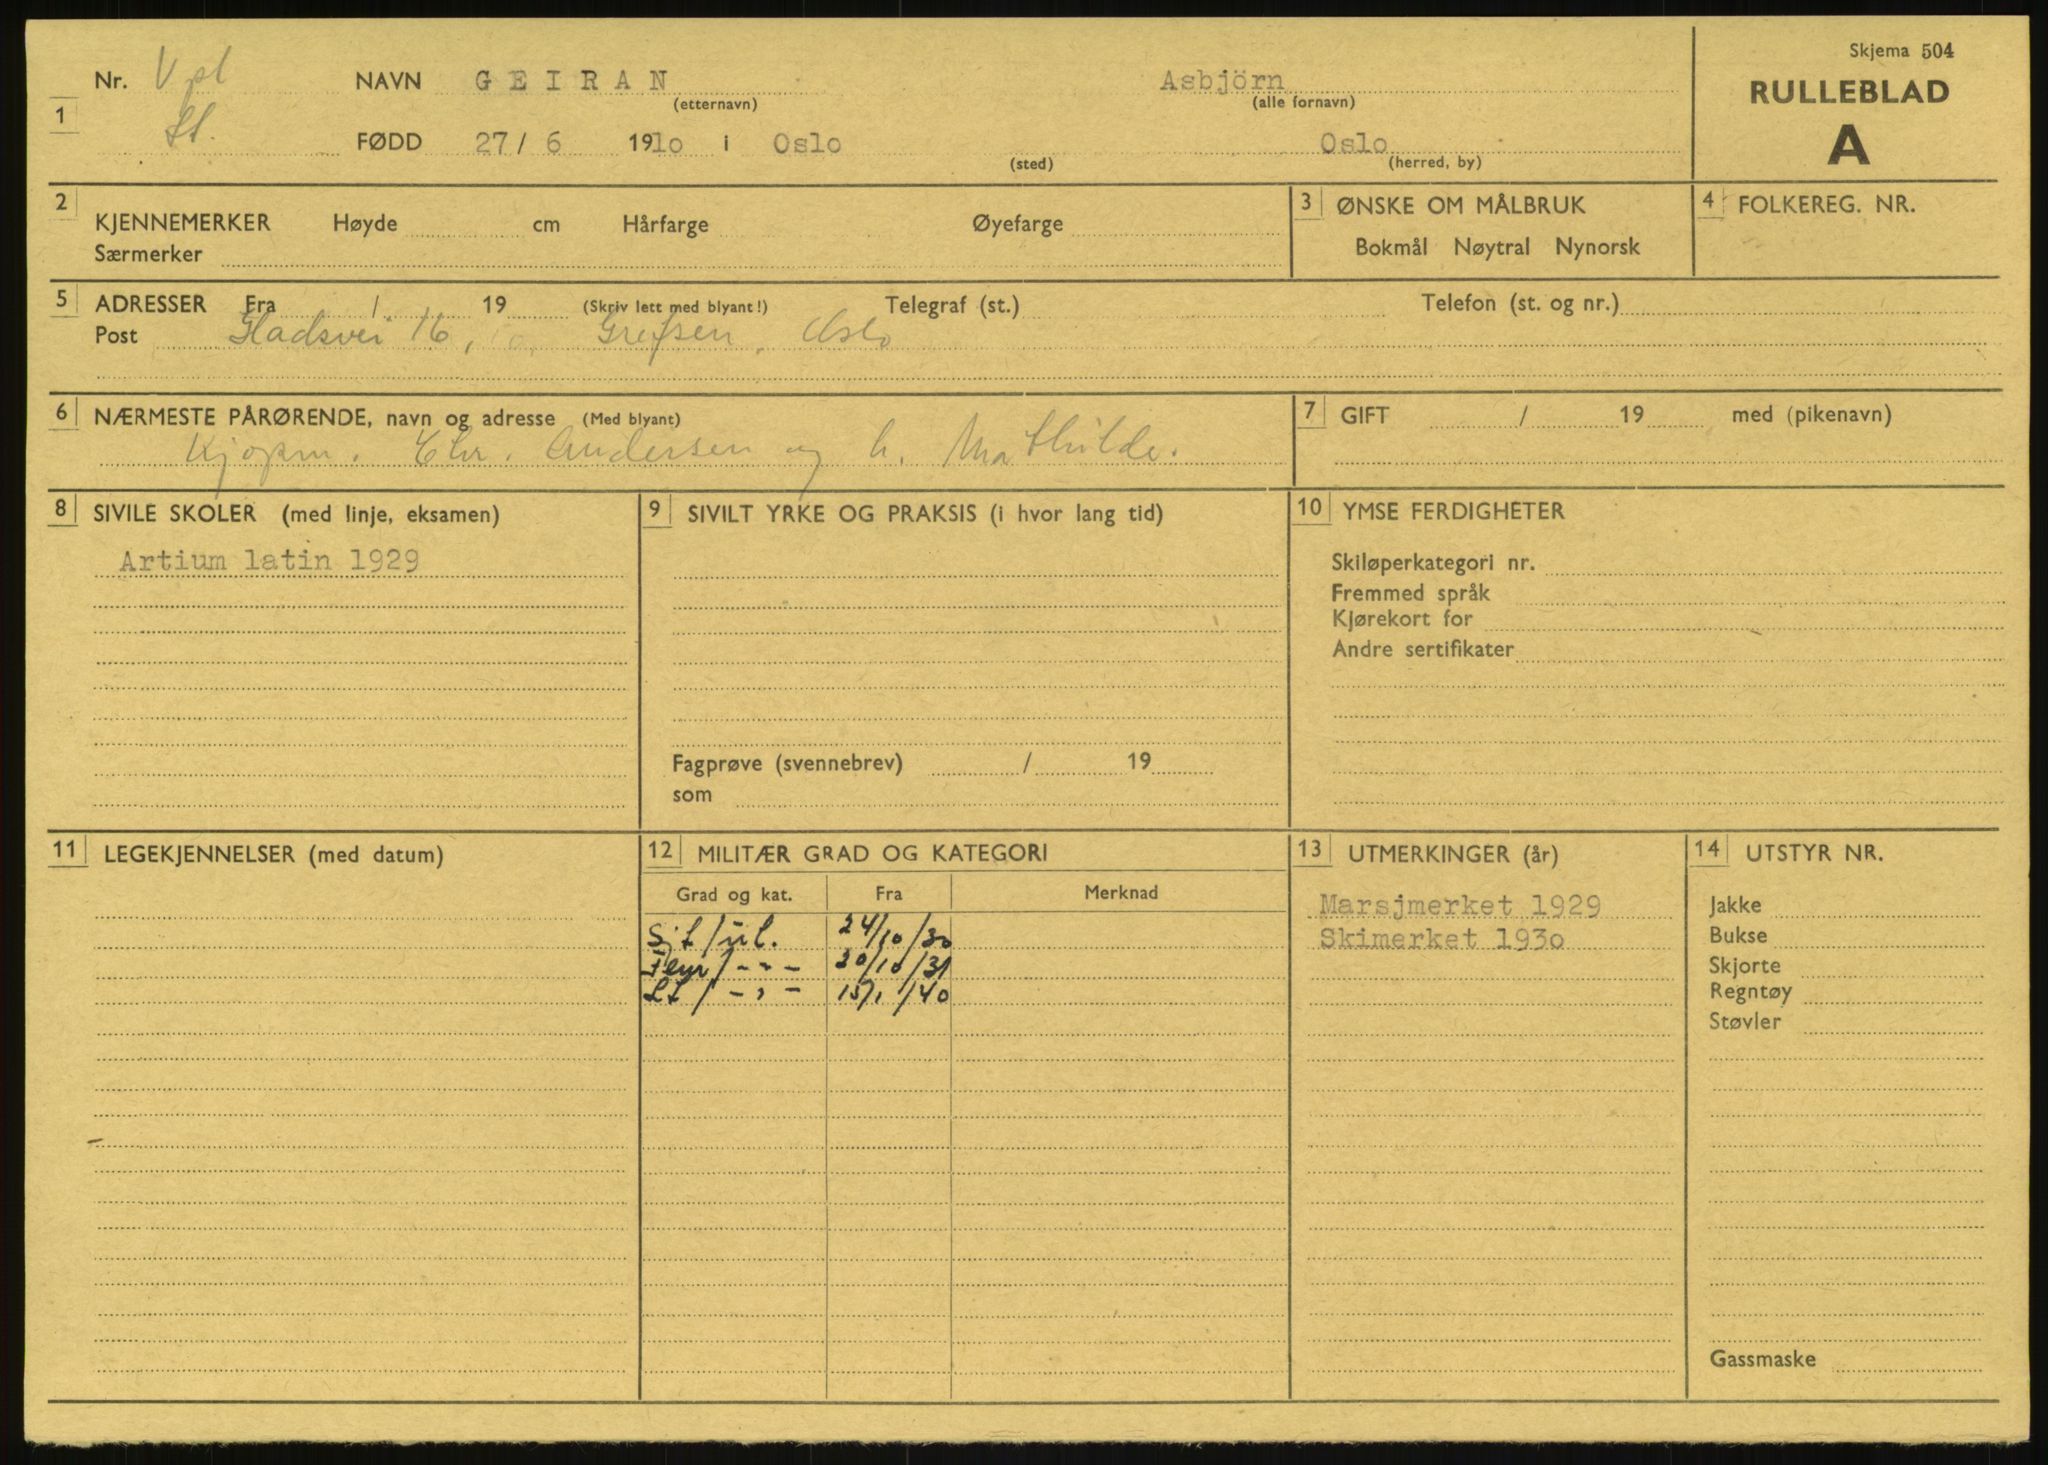 Skjema 504
RULLEBLAD
A
1 Nr. Vpl NAVN GEIRAN (etternavn) Asbjörn (alle fornavn)
Lt. FØDD 27/ 6 1910 i Oslo (sted) Oslo (herred, by)
2 KJENNEMERKER Høyde cm Hårfarge Øyefarge
Særmerker
3 ØNSKE OM MÅLBRUK
Bokmål Nøytral Nynorsk
4 FOLKEREG. NR.
5 ADRESSER Fra / 19 (Skriv lett med blyant!) Telegraf (st.) Telefon (st. og nr.)
Post Gladsvei 16, Grefsen, Oslo
6 NÆRMESTE PÅRØRENDE, navn og adresse (Med blyant)
Kjøpm. Chr. Andersen og h. Mathilde.
7 GIFT / 19 med (pikenavn)
8 SIVILE SKOLER (med linje, eksamen)
Artium latin 1929
9 SIVILT YRKE OG PRAKSIS (i hvor lang tid)
Fagprøve (svennebrev) / 19
som
10 YMSE FERDIGHETER
Skiløperkategori nr.
Fremmed språk
Kjørekort for
Andre sertifikater
11 LEGEKJENNELSER (med datum)
12 MILITÆR GRAD OG KATEGORI
Grad og kat. Fra Merknad
Sjt/ul. 24/10/30
/ - " - 20/10/31
Lt / - " - 15/1/40
13 UTMERKINGER (år)
Marsjmerket 1929
Skimerket 1930
14 UTSTYR NR.
Jakke
Bukse
Skjorte
Regntøy
Støvler
Gassmaske